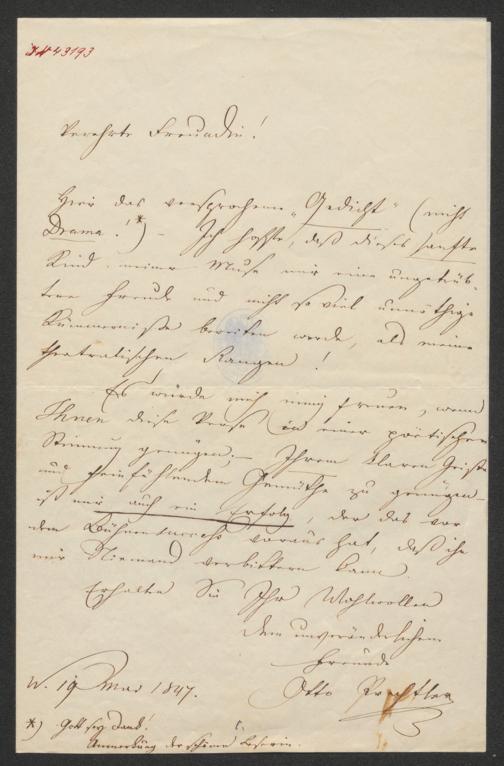 J.N. 43193
Verehrte Freundin!
Hier das versprochene „Gedicht" (nicht
Drama!*) – Ich hoffe, daß dieses sanfte
Kind meiner Muse mir eine ungetrüb-
tere Freude und nicht so viel unnöthige
Kümmerniße bereiten werde, als meine
theatralischen Rangen!
Es würde mich innig freuen, wenn
Ihnen diese Verse in einer poëtischen
Stimmung genügen; – Ihrem klaren Geiste
und feinfühlenden Gemüthe zu genügen –
ist mir auch ein Erfolg, der das vor
dem Bühnensuccess voraus hat, daß ihn
mir Niemand verbittern kann.
Erhalten Sie Ihr Wohlwollen
dem unveränderlichen
Freunde
Otto Prechtler
W. 19 Mai 1847.
*) Gott sey Dank!
Anmerkung der schönen Leserin.